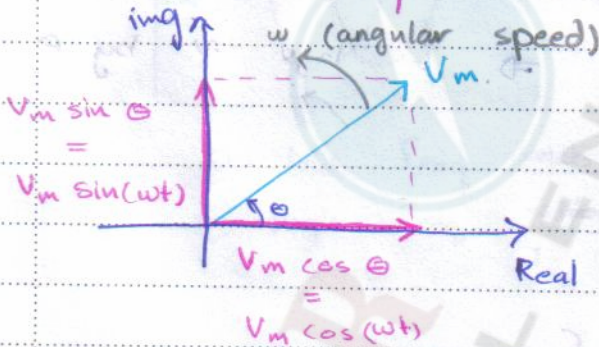 img
ω (angular speed)
Vm
Vm sin θ
=
Vm sin(ωt)
θ
Real
Vm cos θ
=
Vm cos(ωt)